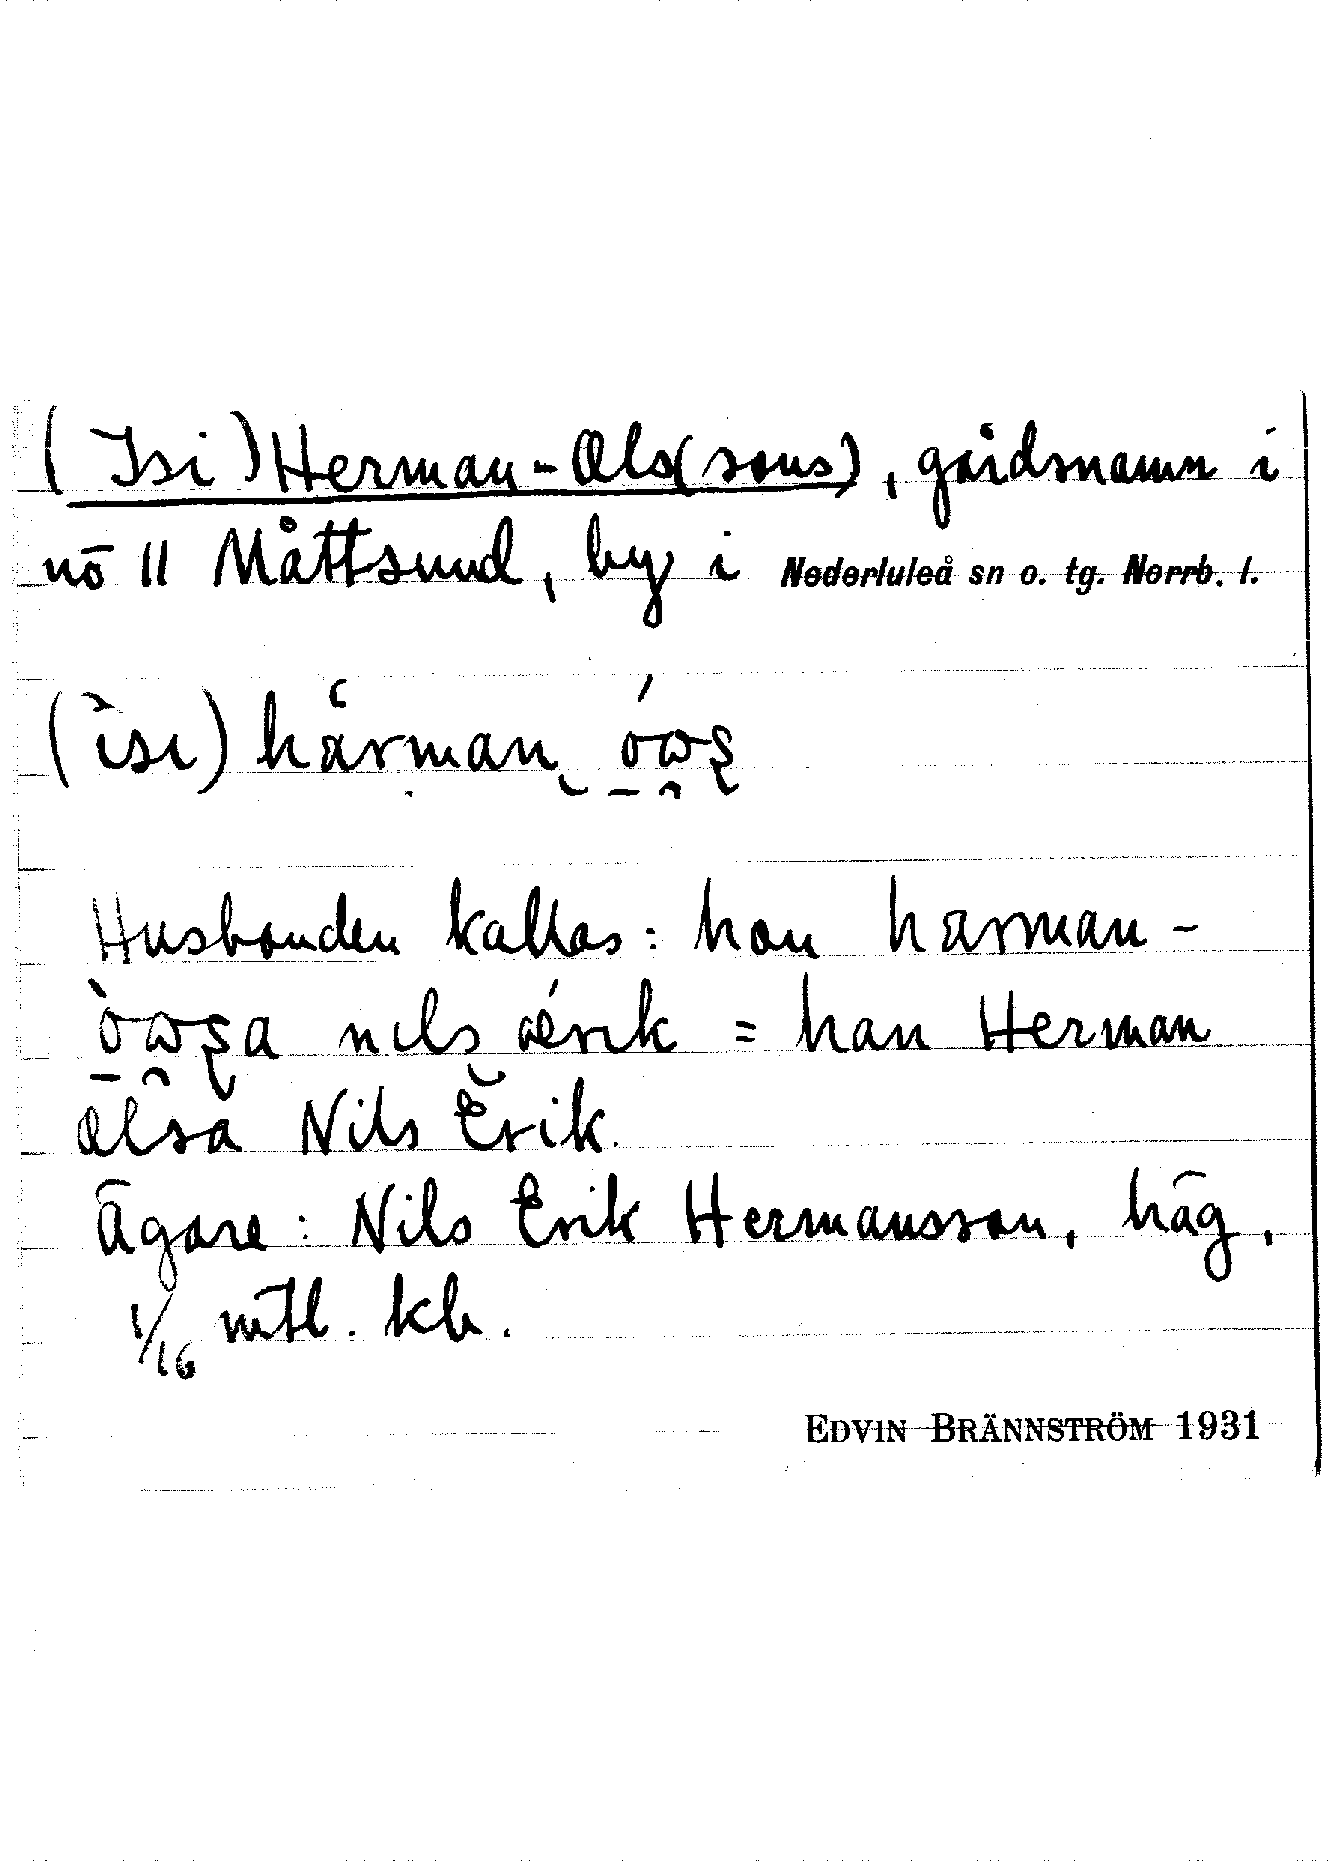 (Isi) Herman-Ols(sons), gårdsnamn i
nō 11 Måttsund, by i Nederluleå sn o. tg. Norrb. l.
(ìsı) hárman
Husbonden kallas: han harman-
nıls ǽrık = han Herman
Olsa Nils Erik.
Ägare: Nils Erik Hermansson, häg,
1/16 mtl. kb.
EDVIN BRÄNNSTRÖM 1931